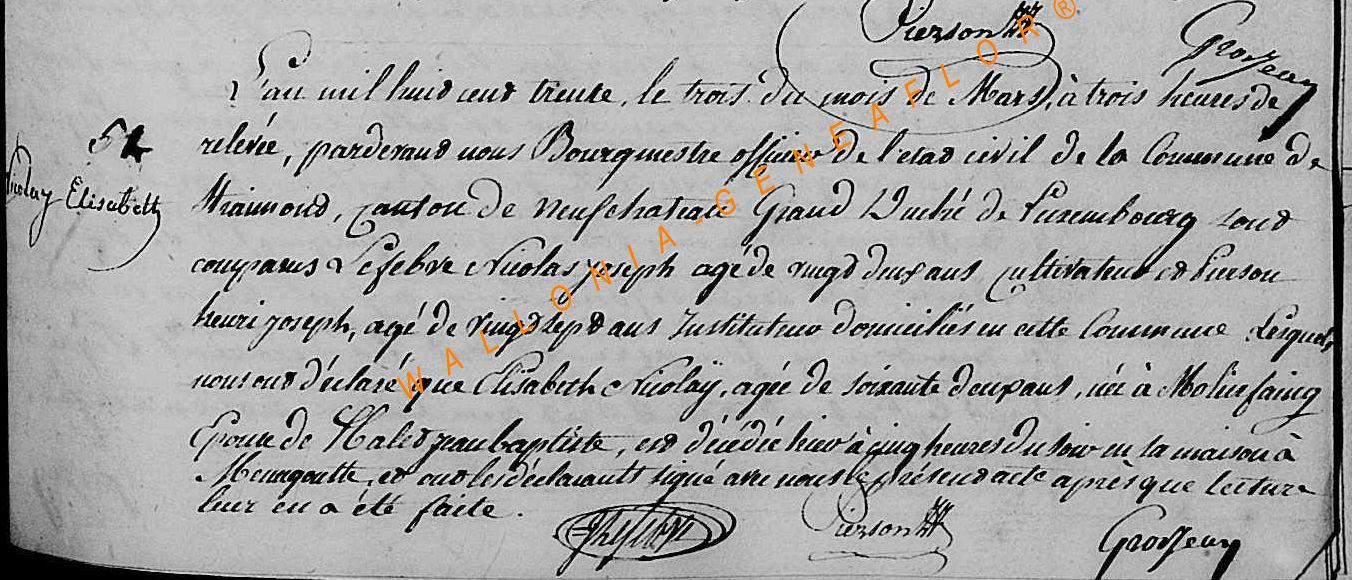 Pierson
Grosjean
L'an mil huit cent trente, le trois du mois de Mars, à trois heures de
relevée, pardevant nous Bourgmestre officier de l'etat civil de la Commune de
Straimont, canton de Neufchateau Grand Duché de Luxembourg sont
comparus Lefebvre Nicolas joseph agé de vingt deux ans cultivateur et Pierson
henri joseph, agé de vingt sept ans Instituteur domiciliés en cette Commune Lesquels
nous ont déclaré que Elisabeth Nicolaÿ, agée de soixante deux ans, née à Molinfaing
Epouse de Halet jean baptiste, est décédée hier à cinq heures du soir en sa maison à
Menugoutte, et ont les déclarants signé avec nous le présent acte après que lecture
leur en a été faite.
54
Nicolay Elisabeth
Pierson
Grosjean
WALLONIA-GENEAFLOR®